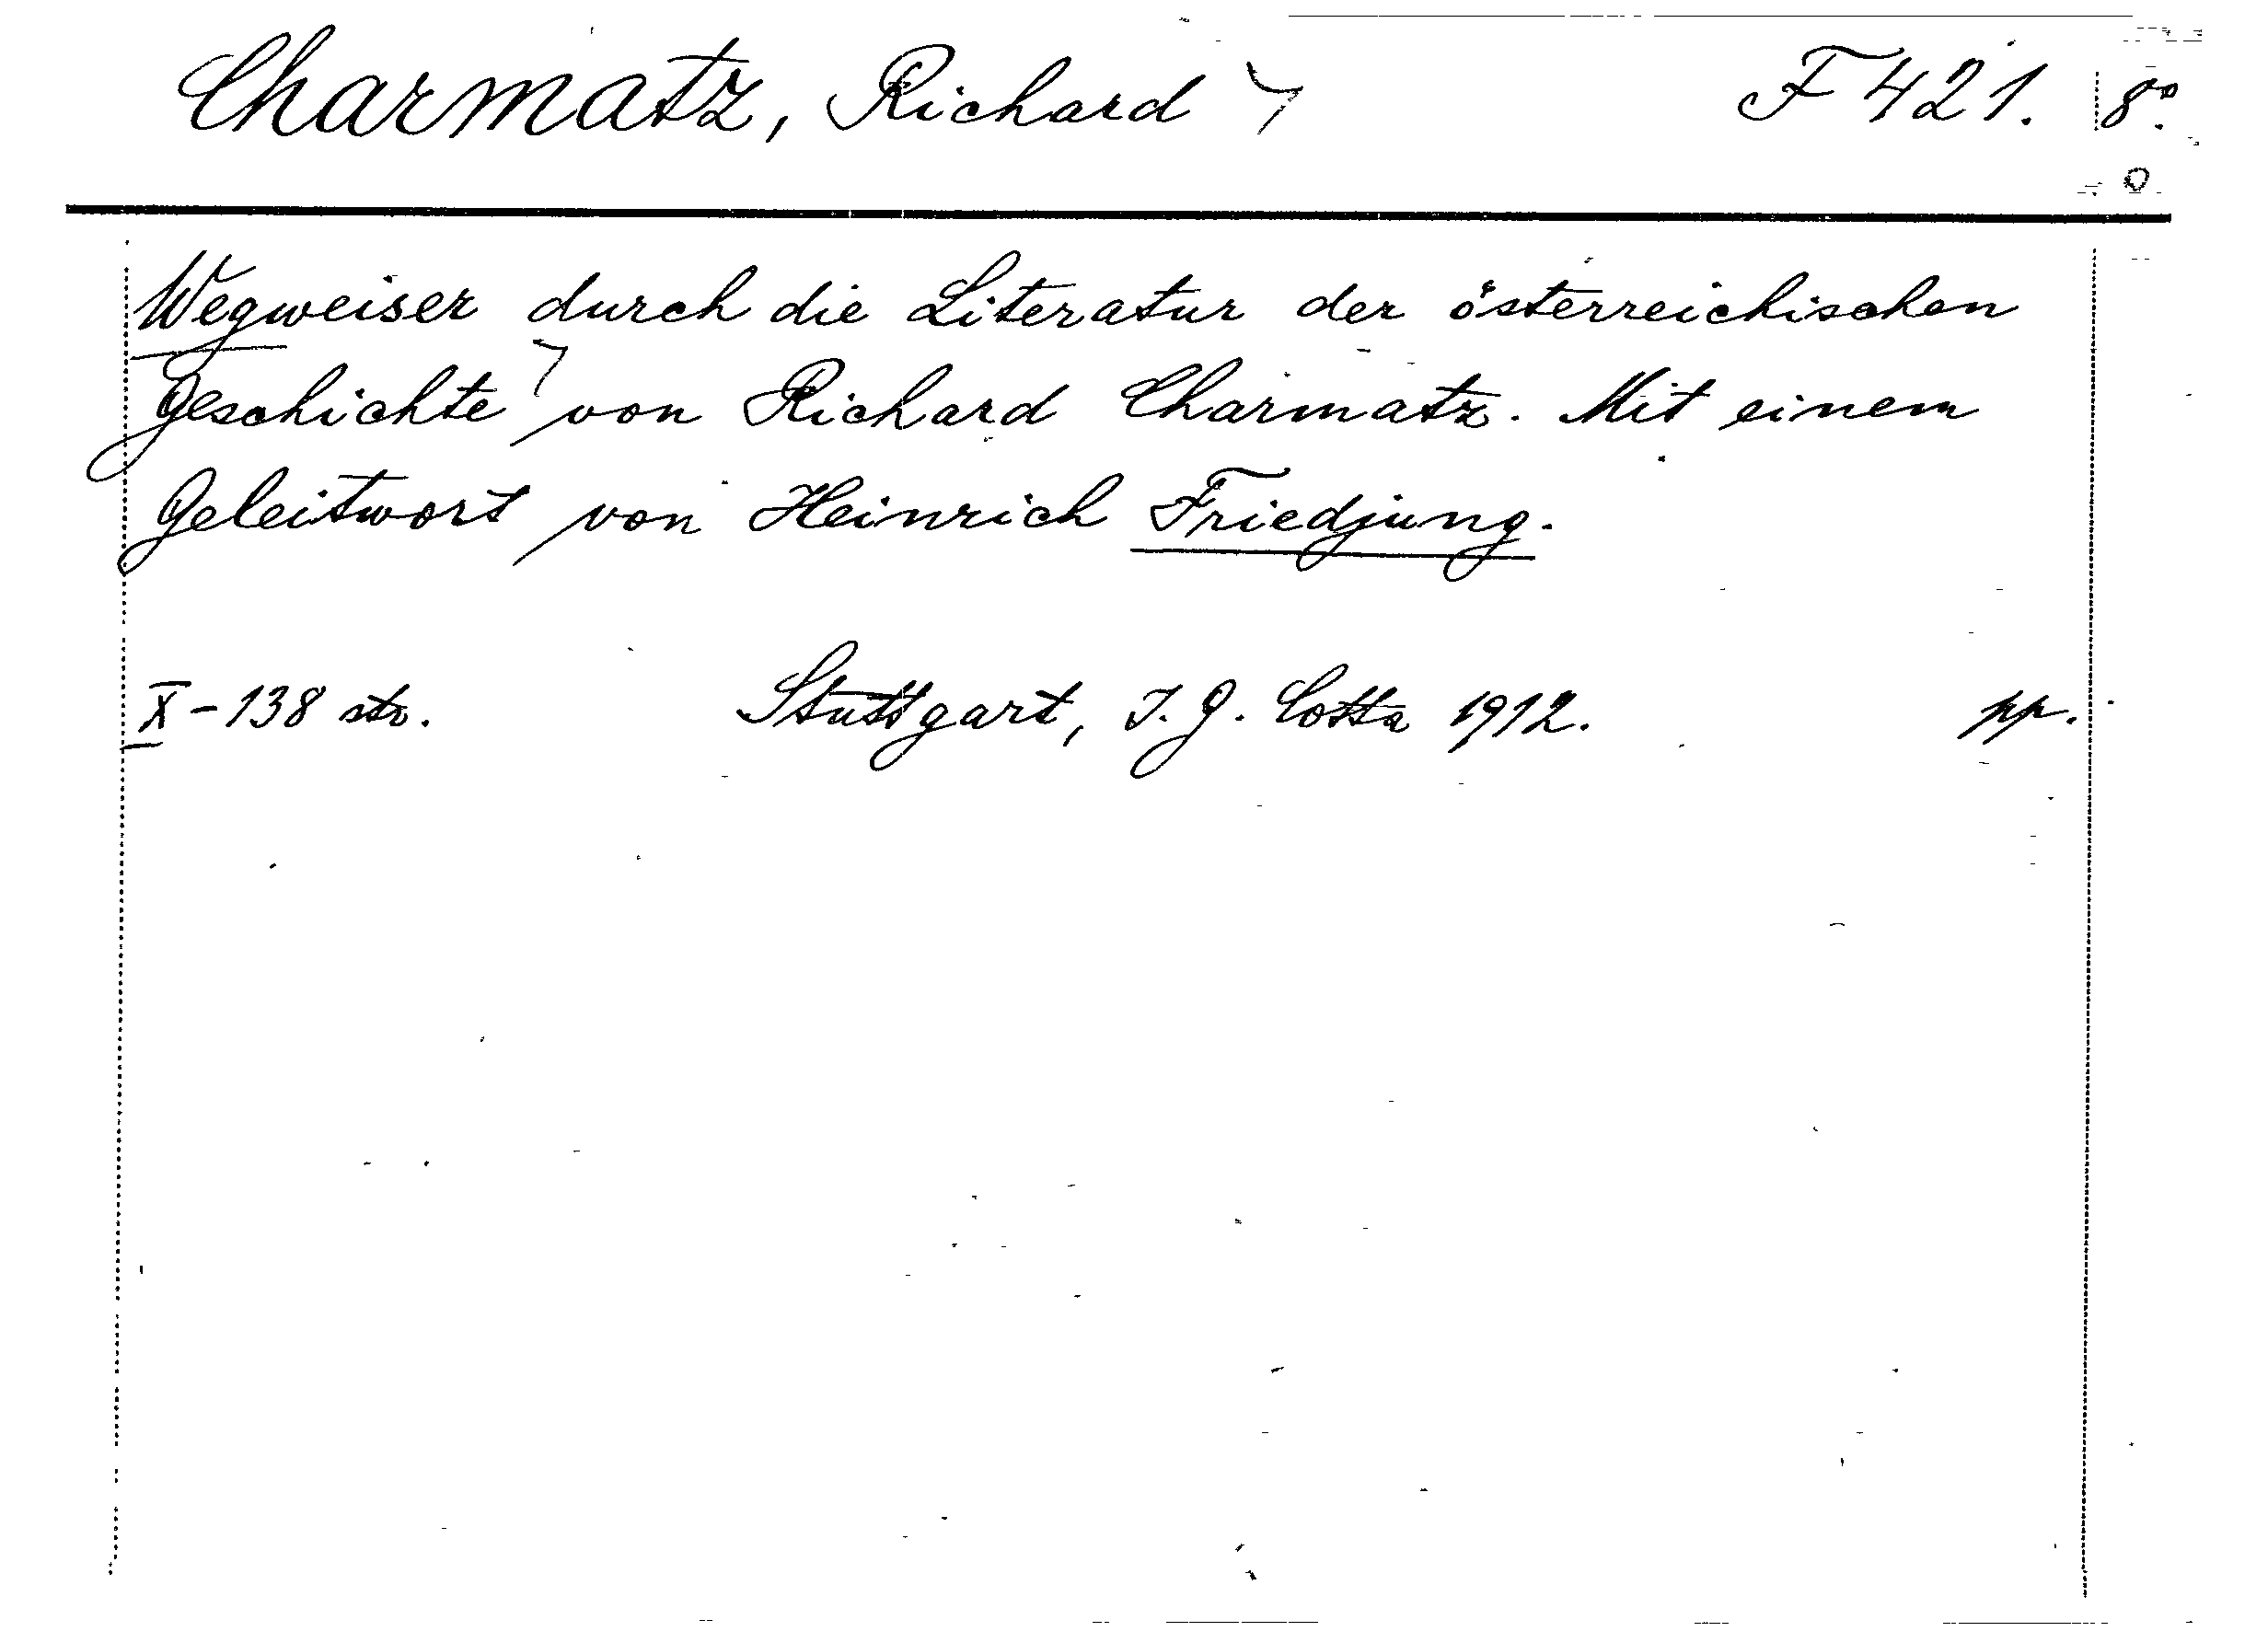 Charmatz, Richard F 421. 8°.
Wegweiser durch die Literatur der österreichischen
Geschichte von Richard Charmatz. Mit einem
Geleitwort von Heinrich Friedjung.
X-138 str. Stuttgart, J. G. Cotta 1912. pp.